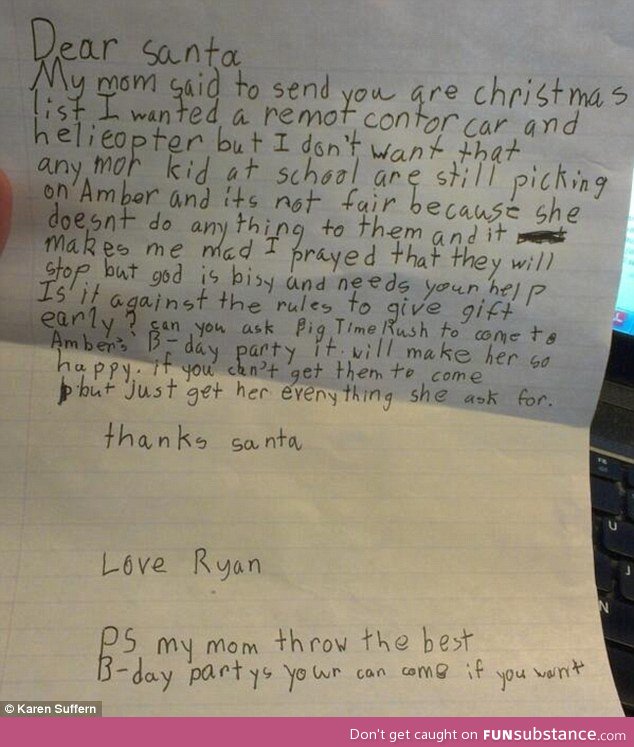 Dear santa
My mom said to send you are christmas
list I wanted a remot contor car and
helicopter but I don't want that
any mor kid at school are still picking
on Amber and its not fair because she
doesnt do anything to them and it
makes me mad I prayed that they will
stop but god is bisy and needs your help
Is it against the rules to give gift
early? can you ask Big Time Rush to come to
Amber's B-day party it will make her so
happy. if you can't get them to come
but just get her everything she ask for.
thanks santa
Love Ryan
PS my mom throw the best
B-day partys your can come if you want
© Karen Suffern
Don't get caught on FUNsubstance.com